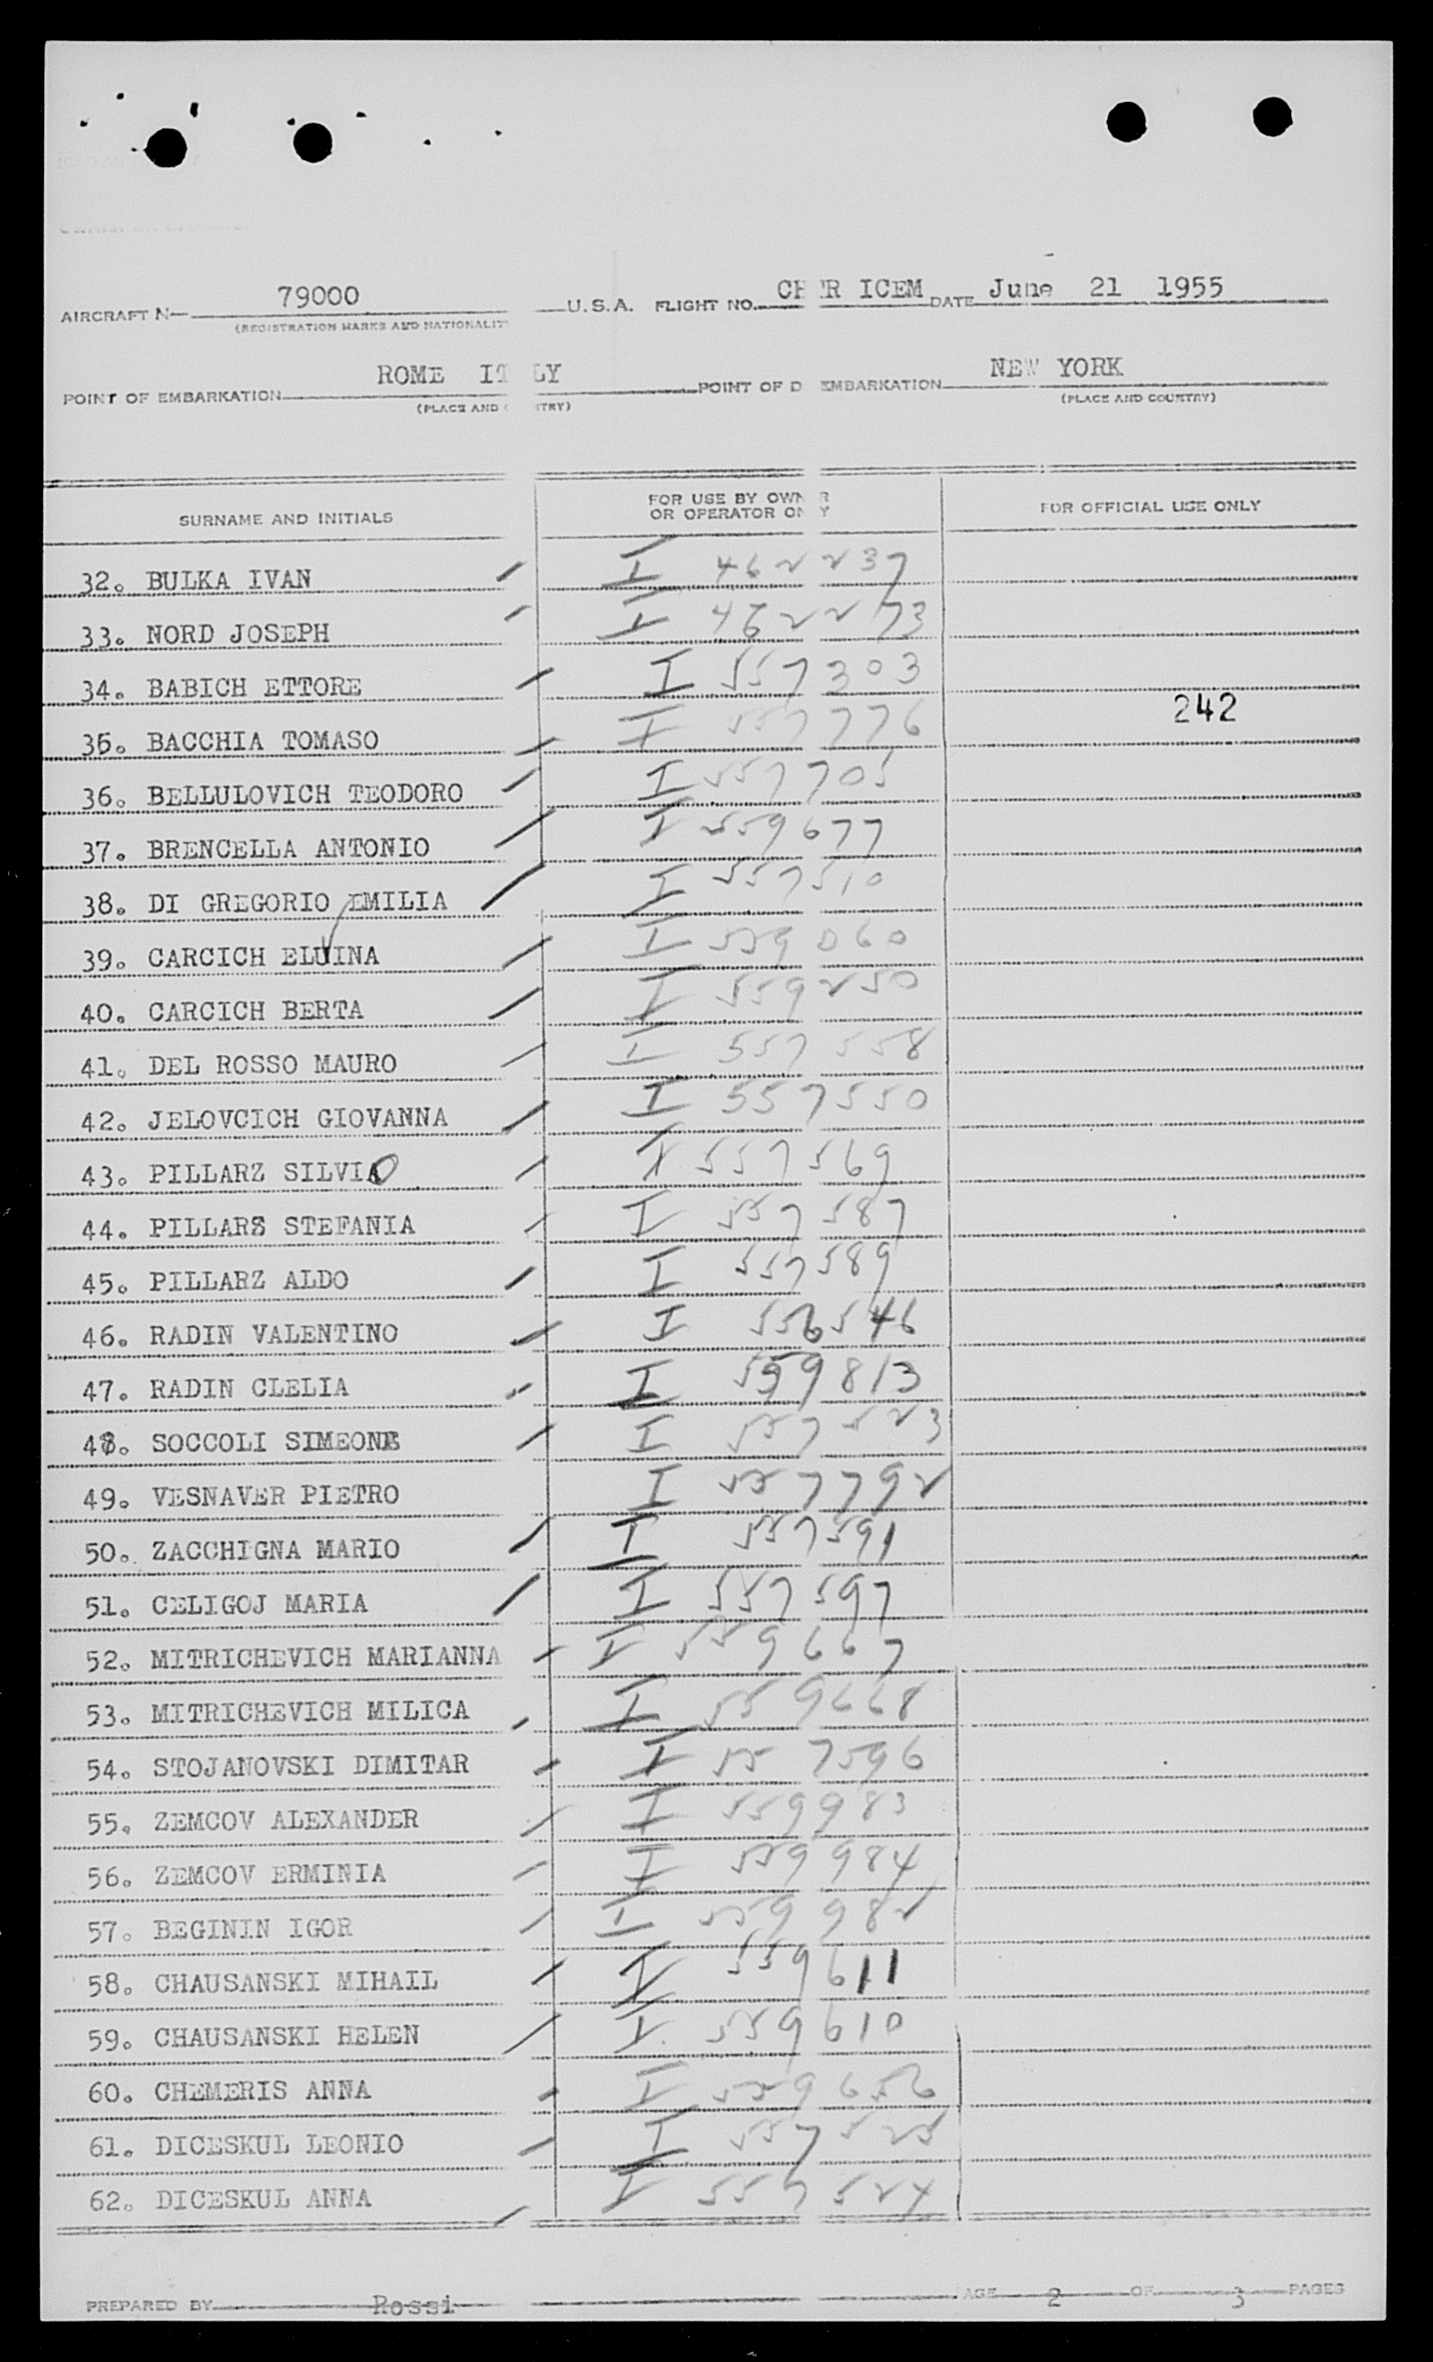 AIRCRAFT N— 79000 U.S.A. FLIGHT NO. CH R ICEM DATE June 21 1955
(REGISTRATION MARKS AND NATIONALIT
POINT OF EMBARKATION ROME IT LY POINT OF D EMBARKATION NEW YORK
(PLACE AND C NTRY) (PLACE AND COUNTRY)
SURNAME AND INITIALS FOR USE BY OWN R OR OPERATOR ON Y FOR OFFICIAL USE ONLY
32. BULKA IVAN I 462237
33. NORD JOSEPH I 462273
34. BABICH ETTORE I 557303
242
35. BACCHIA TOMASO I 557776
36. BELLULOVICH TEODORO I 557705
37. BRENCELLA ANTONIO I 559677
38. DI GREGORIO EMILIA I 557510
39. CARCICH ELUINA I 559060
40. CARCICH BERTA I 559250
41. DEL ROSSO MAURO I 557558
42. JELOVCICH GIOVANNA I 557550
43. PILLARZ SILVIO I 557569
44. PILLARS STEFANIA I 557587
45. PILLARZ ALDO I 557589
46. RADIN VALENTINO I 556546
47. RADIN CLELIA I 559813
48. SOCCOLI SIMEONE I 557523
49. VESNAVER PIETRO I 557792
50. ZACCHIGNA MARIO I 557591
51. CELIGOJ MARIA I 557597
52. MITRICHEVICH MARIANNA I 559667
53. MITRICHEVICH MILICA I 559668
54. STOJANOVSKI DIMITAR I 557596
55. ZEMCOV ALEXANDER I 559983
56. ZEMCOV ERMINIA I 559984
57. BEGININ IGOR I 559982
58. CHAUSANSKI MIHAIL I 559611
59. CHAUSANSKI HELEN I 559610
60. CHEMERIS ANNA I 559656
61. DICESKUL LEONIO I 557525
62. DICESKUL ANNA I 557524
PREPARED BY Rossi AGE 2 OF 3 PAGES